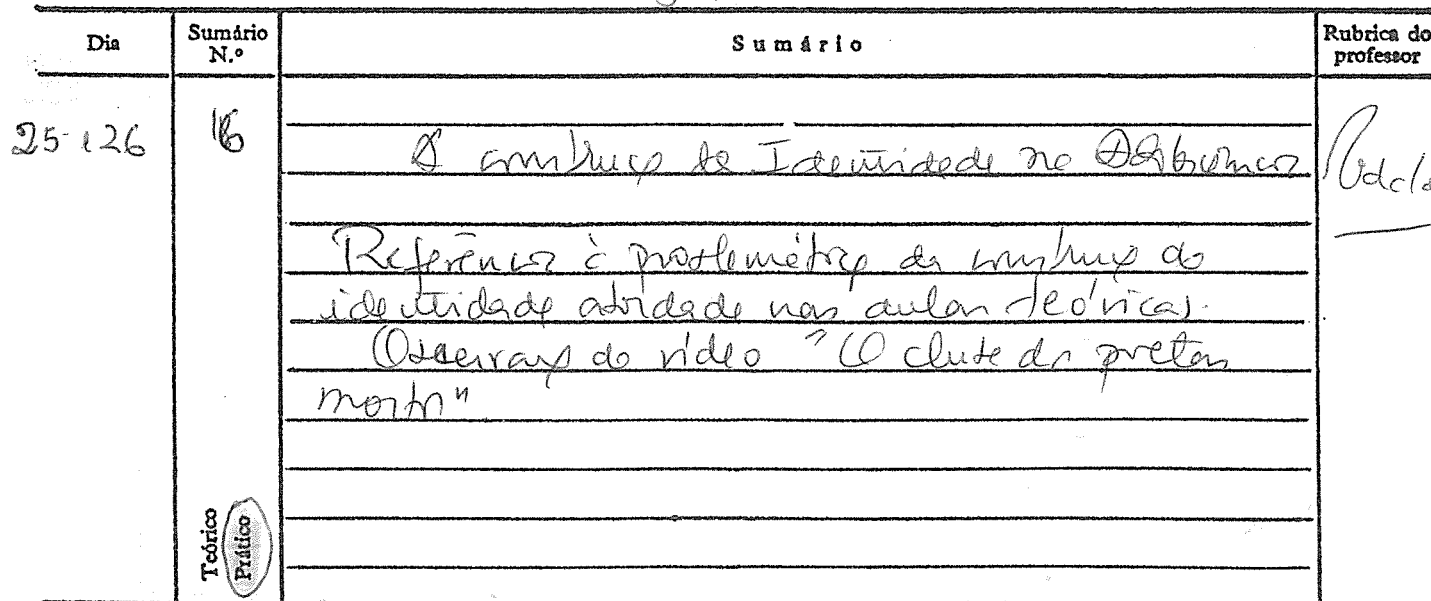 Dia
Sumário N.º
Sumário
Rubrica do professor
25-126
16
A construção da Identidade na Adolescência
Referência à problemática da construção da
identidade abordada nas aulas teóricas.
Observação do vídeo "O clube dos poetas
mortos"
Teórico
Prático